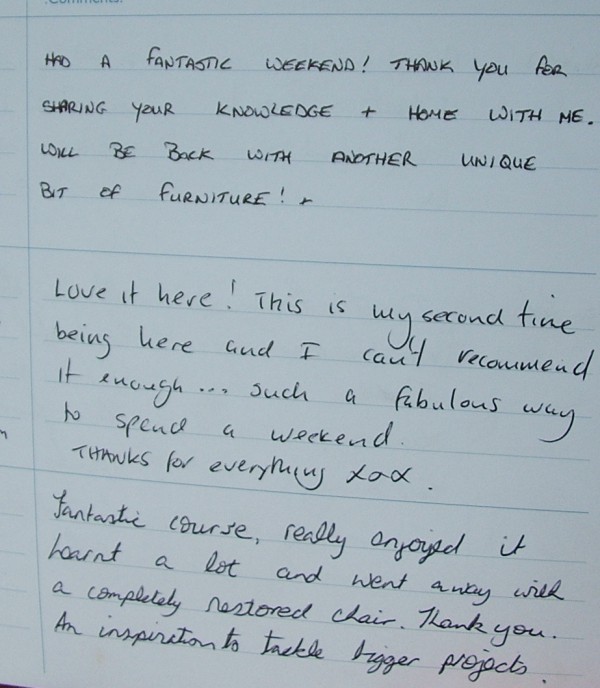 Comments:
HAD A FANTASTIC WEEKEND! THANK YOU FOR
SHARING YOUR KNOWLEDGE + HOME WITH ME.
WILL BE BACK WITH ANOTHER UNIQUE
BIT OF FURNITURE! x
Love it here! This is my second time
being here and I can't recommend
it enough ... such a fabulous way
to spend a weekend.
THANKS for everything xox.
Fantastic course, really enjoyed it
learnt a lot and went away with
a completely restored chair. Thank you.
An inspiration to tackle bigger projects.